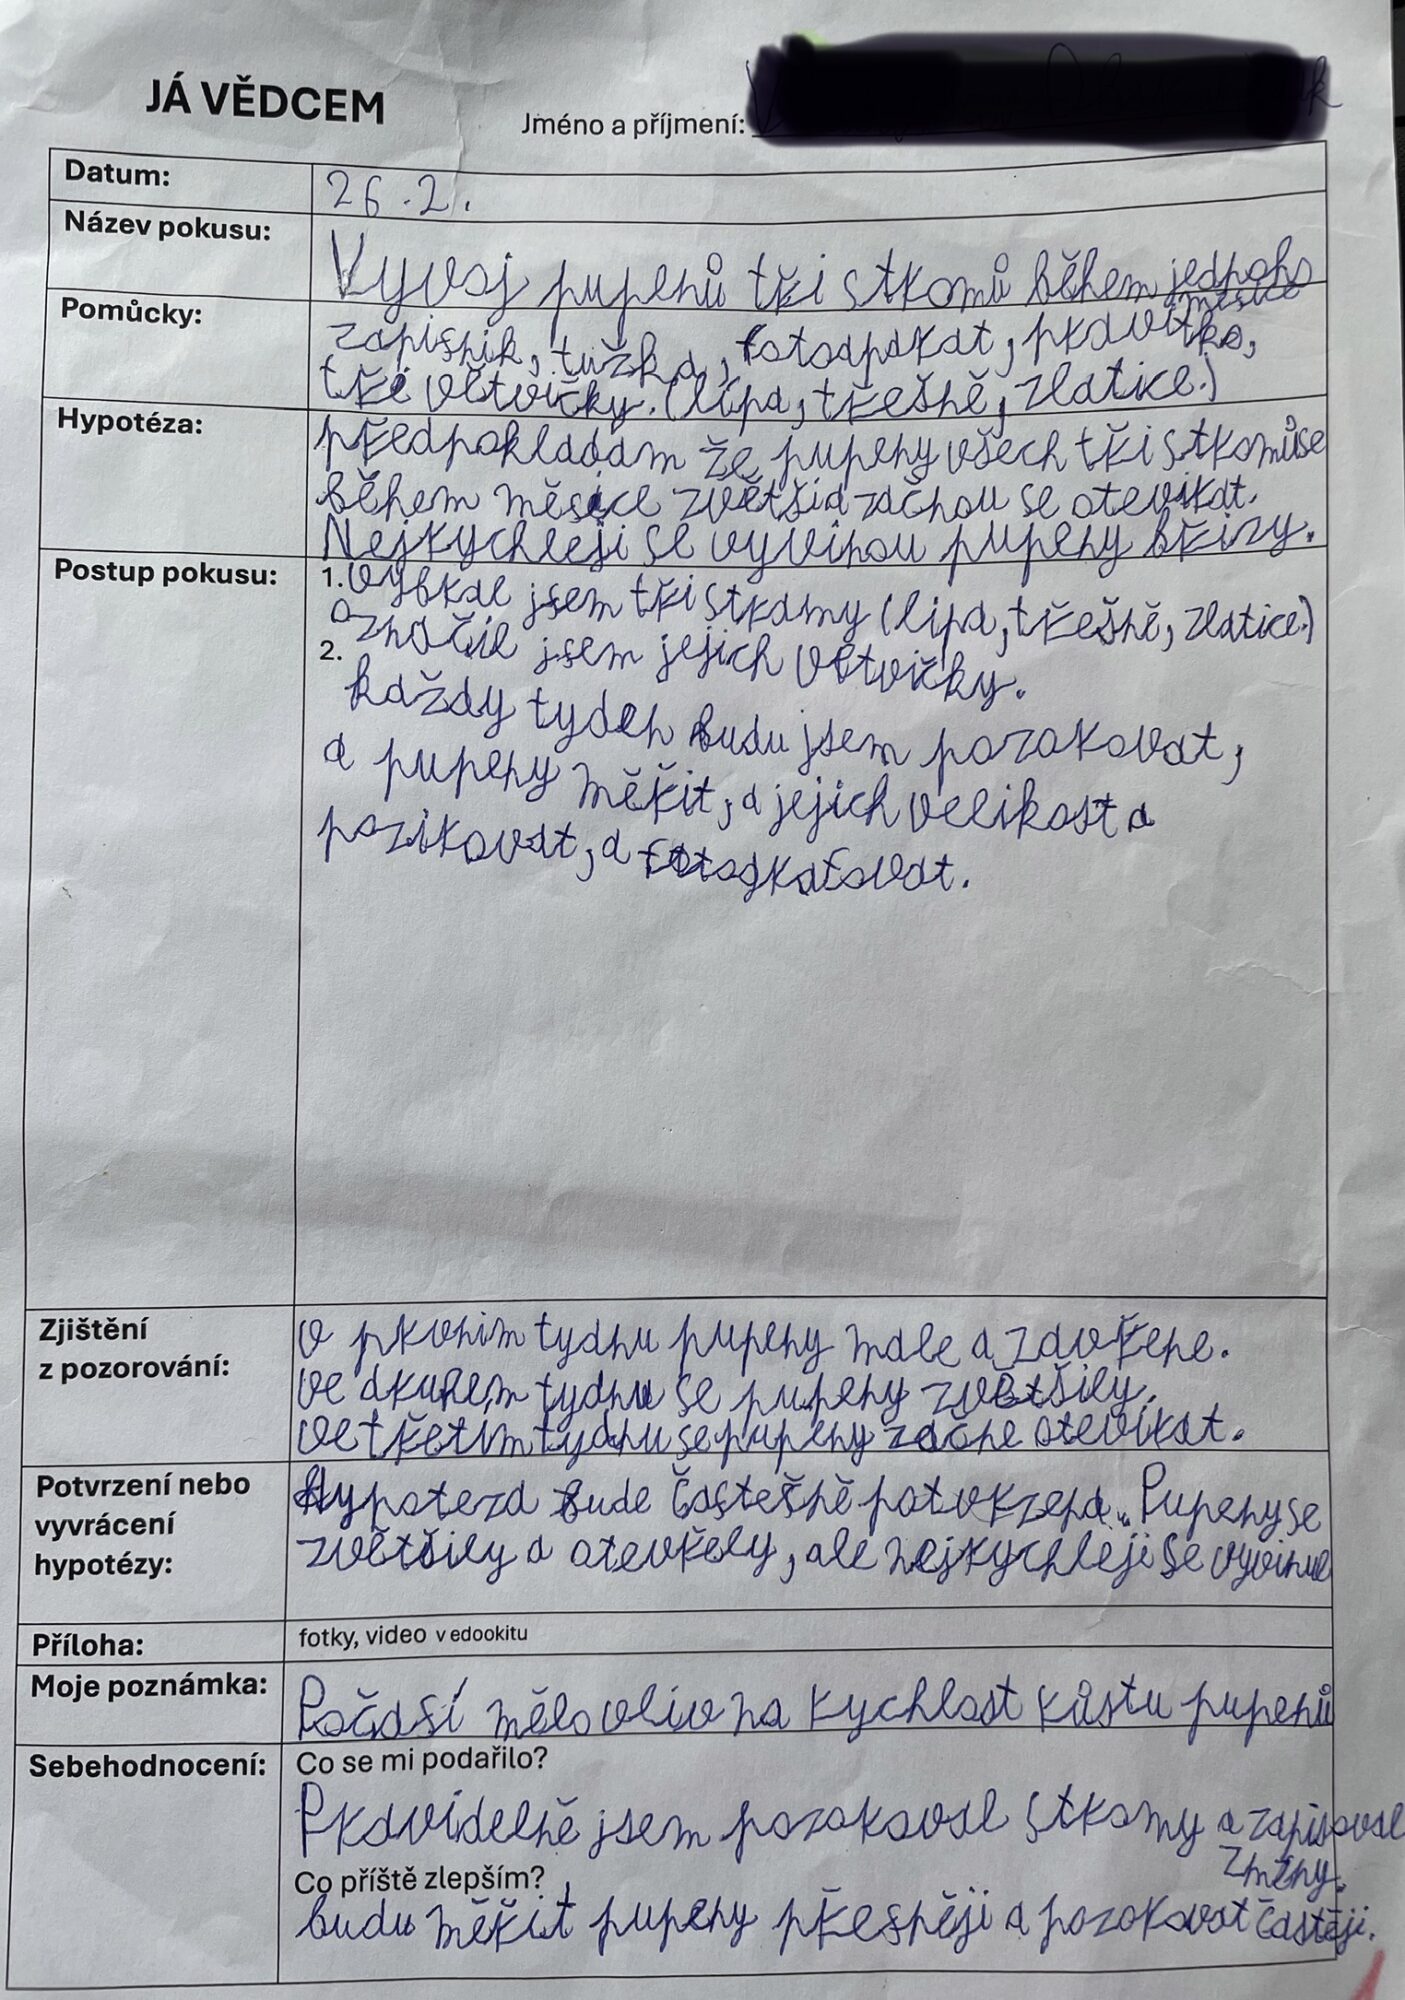 JÁ VĚDCEM
Jméno a příjmení:
Datum: 26.2.
Název pokusu: Vyvoj pupenů tři stromů během jednoho
měsíce
Pomůcky: zapisnik, tužka, fotoaparat, pravítko,
tři větvičky. (lípa, třešně, zlatice.)
Hypotéza: předpokladam že pupeny všech tři stromůse
během měsice zvětšia začnou se otevirat.
Nejrychleji se vyvinou pupeny břizy.
Postup pokusu: 1. vybral jsem tři stromy (lipa, třešně, zlatice.)
označil jsem jejich větvičky.
2.
každy tyden budu jsem pozorovat,
a pupeny měřit, a jejich velikost a
pozirovat, a fotografovat.
Zjištění
z pozorování:
v prvnim tydnu pupeny male a zavřene.
ve druhem tydnu se pupeny zvětšily.
ve třetím tydnu se pupeny začne otevirat.
Potvrzení nebo
vyvrácení
hypotézy:
Hypoteza bude častešně potvrzena. Pupeny se
zvětšily a otevřely, ale nejrychleji se vyvinul
Příloha: fotky, video v edookitu
Moje poznámka: Počasí mělo vliv na rychlost růstu pupenů
Sebehodnocení: Co se mi podařilo?
Pravidelně jsem pozoroval stromy a zapisoval
změny.
Co příště zlepším?
budu měřit pupeny přesněji a pozorovat častěji.